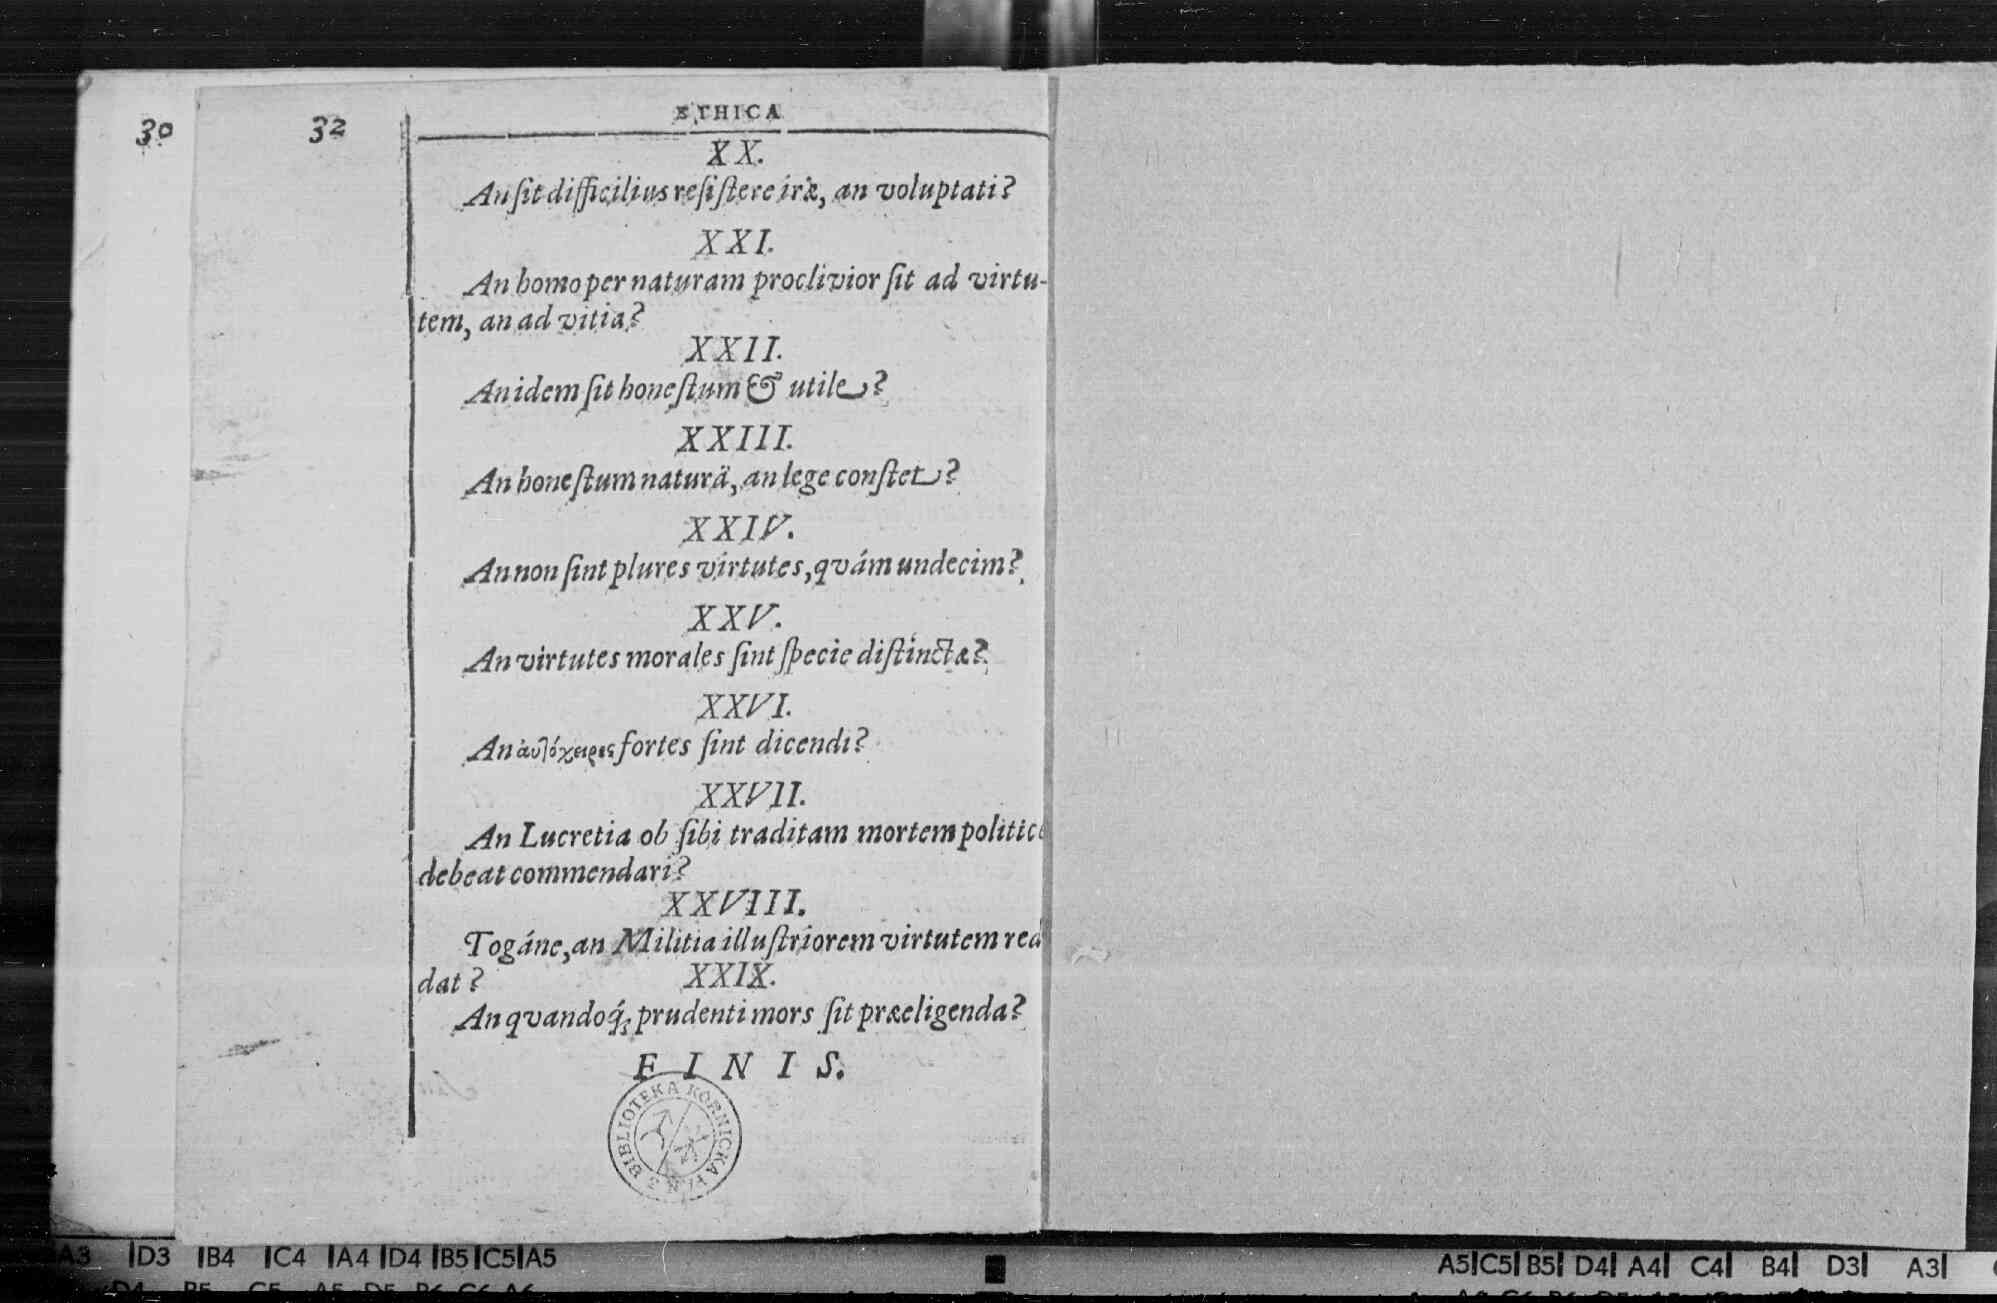 30
32
ETHICA
XX.
An ſit difficilius reſiſtere iræ, an voluptati?
XXI.
An homo per naturam proclivior ſit ad virtu-
tem, an ad vitia?
XXII.
An idem ſit honeſtum & utile?
XXIII.
An honeſtum naturâ, an lege conſtet?
XXIV.
An non ſint plures virtutes, quám undecim?
XXV.
An virtutes morales ſint ſpecie diſtinctæ?
XXVI.
An αὐτόχειρες fortes ſint dicendi?
XXVII.
An Lucretia ob ſibi traditam mortem politicè
debeat commendari?
XXVIII.
Togáne, an Militia illuſtriorem virtutem red
dat?
XXIX.
An quandoq́; prudenti mors ſit præeligenda?
FINIS.
BIBLIOTEKA KORNICKA
A3 D3 B4 C4 A4 D4 B5 C5 A5
A5 C5 B5 D4 A4 C4 B4 D3 A3
D4 B5 C5 A5 D5 B6 C6 A6